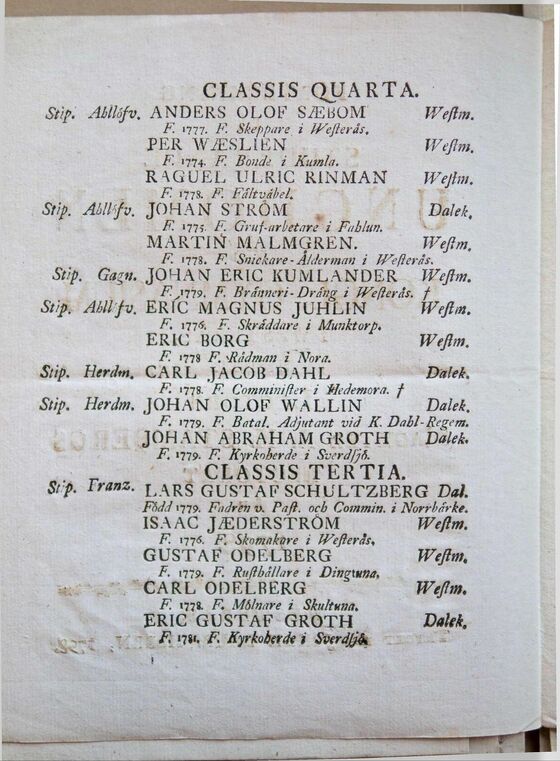 CLASSIS QUARTA.
Stip. Ahllöfv. ANDERS OLOF SÆBOM Westm.
F. 1777. F. Skeppare i Westerås.
PER WÆSLIEN Westm.
F. 1774. F. Bonde i Kumla.
RAGUEL ULRIC RINMAN Westm.
F. 1778. F. Fältväbel.
Stip. Ahllöfv. JOHAN STRÖM Dalek.
F. 1775. F. Gruf-arbetare i Fahlun.
MARTIN MALMGREN. Westm.
F. 1778. F. Snickare-Ålderman i Westerås.
Stip. Gagn. JOHAN ERIC KUMLANDER Westm.
F. 1779. F. Bränneri-Dräng i Westerås. †
Stip. Ahllöfv. ERIC MAGNUS JUHLIN Westm.
F. 1776. F. Skräddare i Munktorp.
ERIC BORG Westm.
F. 1778 F. Rådman i Nora.
Stip. Herdm. CARL JACOB DAHL Dalek.
F. 1778. F. Comminister i Hedemora. †
Stip. Herdm. JOHAN OLOF WALLIN Dalek.
F. 1779. F. Batal. Adjutant vid K. Dahl-Regem.
JOHAN ABRAHAM GROTH Dalek.
F. 1779. F. Kyrkoherde i Sverdsjö.
CLASSIS TERTIA.
Stip. Franz. LARS GUSTAF SCHULTZBERG Dal.
Född 1779. Fadren v. Past. och Commin. i Norrbärke.
ISAAC JÆDERSTRÖM Westm.
F. 1776. F. Skomakare i Westerås.
GUSTAF ODELBERG Westm.
F. 1779. F. Rusthållare i Dingtuna.
CARL ODELBERG Westm.
F. 1778. F. Mölnare i Skultuna.
ERIC GUSTAF GROTH Dalek.
F. 1781. F. Kyrkoherde i Sverdsjö.